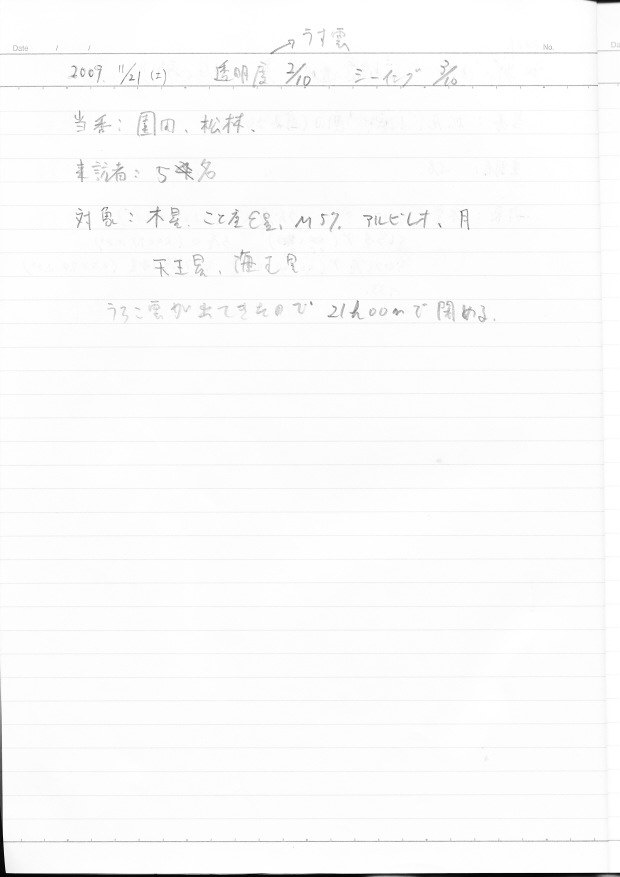 うす雲
Date / / No.
2009. 11/21 (土) 透明度 2/10 シーイング 3/10
当番: 園田、松林、
来訪者: 5名
対象: 木星、こと座ε星、M57、アルビレオ、月
天王星、海王星
うろこ雲が出てきたので 21h00mで閉める.